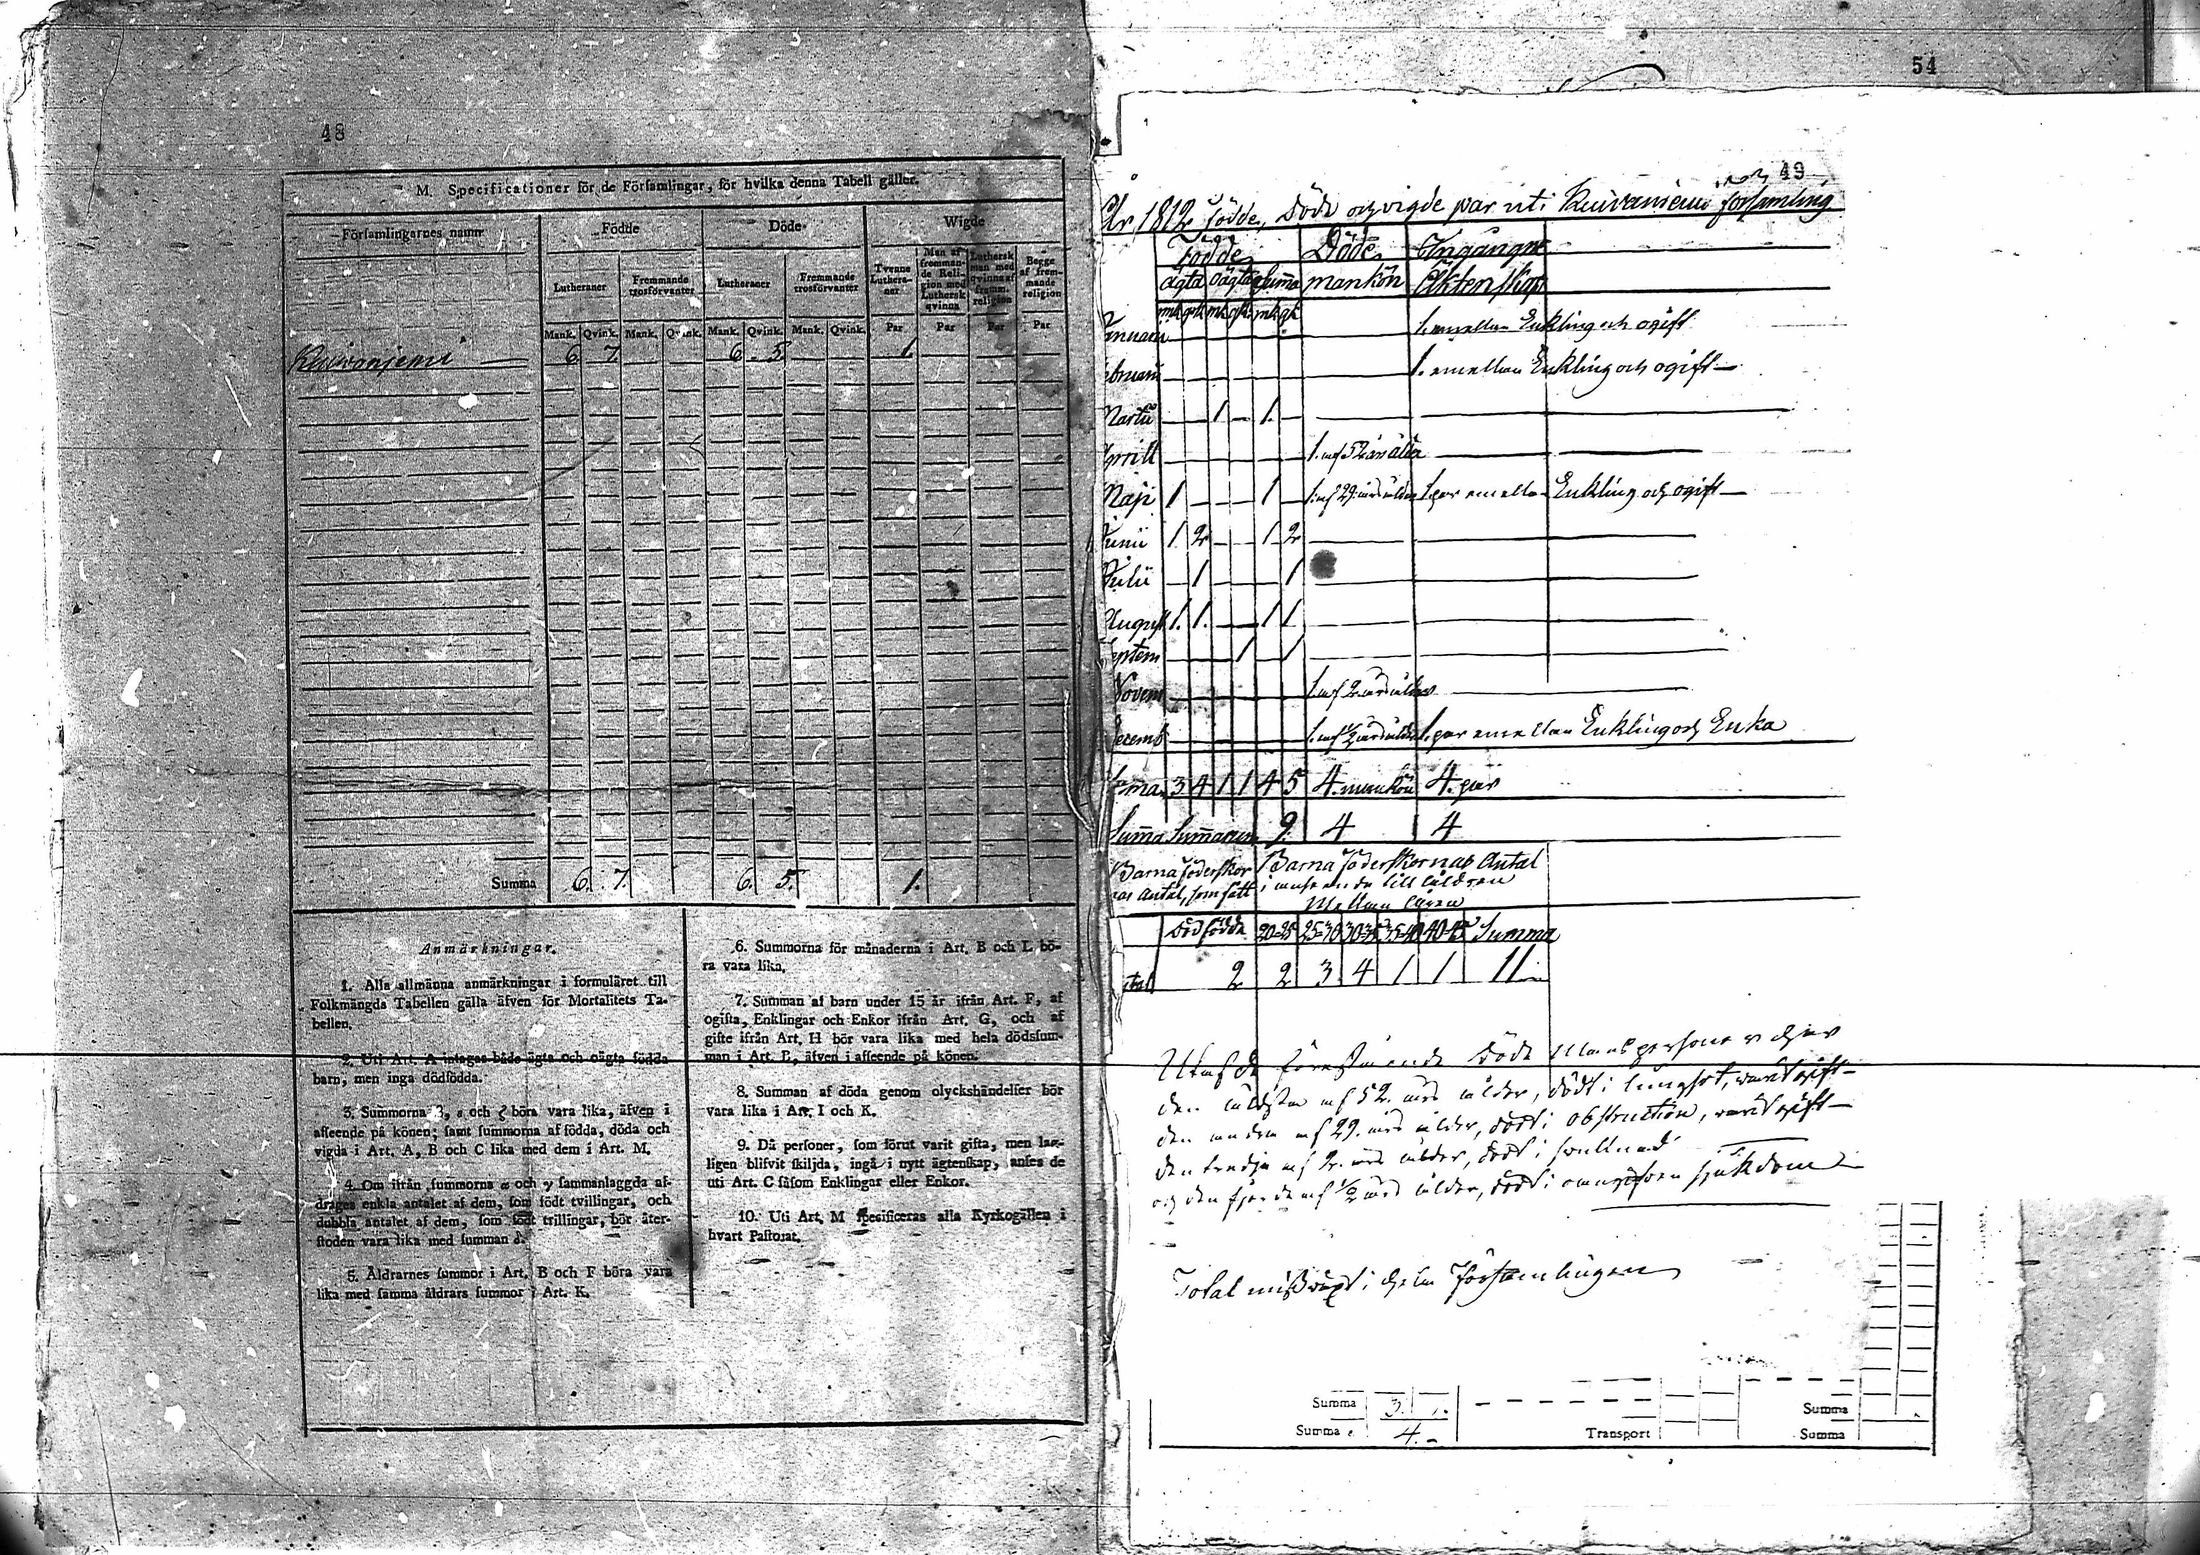 48
M. Specificationer för de Församlingar, för hvilka denna Tabell gäller.
Församlingarnes namn
Födde
Döde
Wigde
Lutheraner
Fremmande trosförvanter
Lutheraner
Fremmande trosförvanter
Tvenne Lutheraner
Man af fremmande Religion med Luthersk qvinna
Luthersk man med qvinna af fremm. religion
Begge af fremmande religion
Mank. Qvink. Mank. Qvink. Mank. Qvink. Mank. Qvink. Par Par Par Par
Kuivaniemi 6. 7. 6. 5. 1.
Summa 6. 7. 6. 5. 1.
Anmärkningar.
1. Alla allmänna anmärkningar i formuläret till
Folkmängds Tabellen gälla äfven för Mortalitets Ta-
bellen.
2. Uti Art. A intagas både ägta och oägta födda
barn, men inga dödfödda.
3. Summorna β, ε och ζ böra vara lika, äfven i
afseende på könen; samt summorna af födda, döda och
vigda i Art. A, B och C lika med dem i Art. M.
4. Om ifrån summorna α och γ sammanlaggda af-
drages enkla antalet af dem, som födt tvillingar, och
dubbla antalet af dem, som födt trillingar, bör åter-
stoden vara lika med summan δ.
5. Åldrarnes summor i Art. B och F böra vara
lika med samma åldrars summor i Art. K.
6. Summorna för månaderna i Art. B och L bö-
ra vara lika.
7. Summan af barn under 15 år ifrån Art. F, af
ogifta, Enklingar och Enkor ifrån Art. G, och af
gifte ifrån Art. H bör vara lika med hela dödssum-
man i Art. B, äfven i afseende på könen.
8. Summan af döda genom olyckshändelser bör
vara lika i Art. I och K.
9. Då personer, som förut varit gifta, men lag-
ligen blifvit skiljda, ingå i nytt ägtenskap, anses de
uti Art. C såsom Enklingar eller Enkor.
10. Uti Art. M specificeras alla Kyrkogällen i
hvart Pastorat.
54
49
År 1812 Födde, Döde och vigde par uti Kuivaniemi församling
Födde Döde Ingångne
ägta oägta Summa mankön Äktenskap
mk qk mk qk mk qk
Januarii 1. emellan Enkling och ogift
Februarii 1. emellan Enkling och ogift
Martii 1 1.
Aprill 1. af 52 års ålder
Maji 1 1 1. af 29 års ålder 1 par emellan Enkling och ogift
Junii 1. 2 1 2
Julii 1 1
August 1. 1. 1 1
Septem 1 1
Novem 1 af 2 års ålder
Decemb 1. af 1/2 års ålder 1. par emellan Enkling och Enka
Summa 3 4 1 1 4 5 4. mankön 4. par
Summa Summarum 9. 4 4
Barnaföderskor
nas Antal, som fått
Dödfödda
Barnaföderskornas Antal
i anseende till åldren
Mellan åren
20-25 25-30 30-35 35-40 40-45 Summa
Antal 2 2 3 4 1 1 11
Utaf de förestående döde Manspersoner
den äldsta af 52. års ålder, död i lungsot, varit gift
den andra af 29. års ålder, död i obstruction, varit gift
den tredje af 2. års ålder, död i svullnad
och den fjerde af 1/2 års ålder, död i omgifven sjukdom
Total missväxt i hela Församlingen
Summa 3. 1.
Summa ε 4.
Transport
Summa
Summa